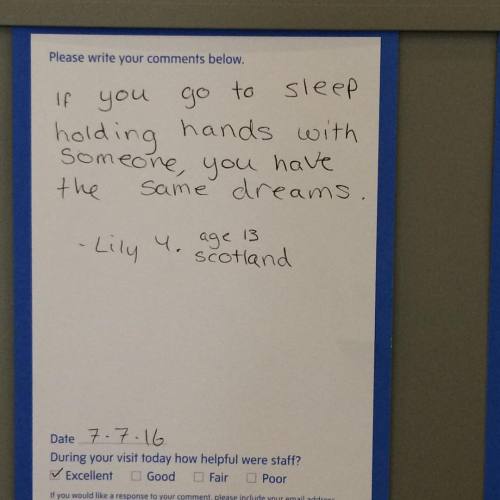 Please write your comments below.
If you go to sleep
holding hands with
someone, you have
the same dreams.
- Lily Y. age 13
scotland
Date 7.7.16
During your visit today how helpful were staff?
✓ Excellent ☐ Good ☐ Fair ☐ Poor
If you would like a response to your comment, please include your email address